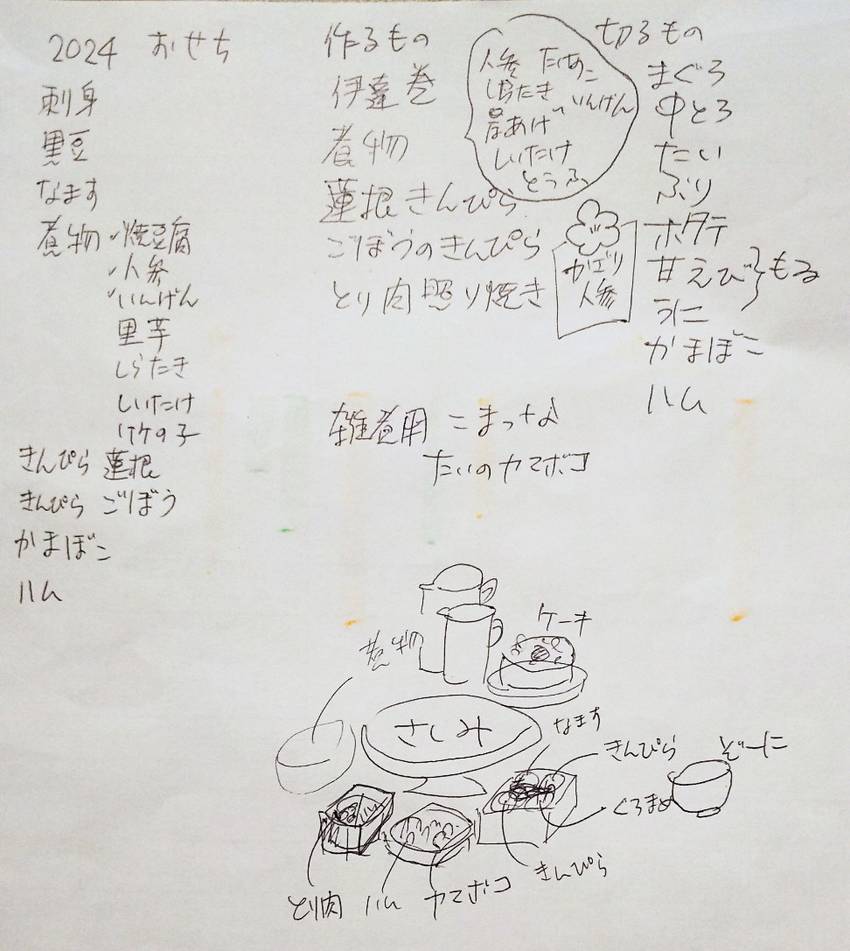 2024 おせち
刺身
黒豆
なます
煮物 ✓焼豆腐
✓人参
✓いんげん
里芋
しらたき
しいたけ
竹の子
きんぴら 蓮根
きんぴら ごぼう
かまぼこ
ハム
作るもの
伊達巻
煮物
蓮根きんぴら
ごぼうのきんぴら
とり肉照り焼き
人参 たけのこ
しらたき
いんげん
しいたけ
とうふ
かざり
人参
切るもの
まぐろ
中とろ
たい
ぶり
ホタテ
甘えび
うに
もる
かまぼこ
ハム
雑煮用 こまつな
たいのカマボコ
ケーキ
煮物
さしみ
なます
きんぴら
ぞーに
くろまめ
きんぴら
とり肉 ハム カマボコ